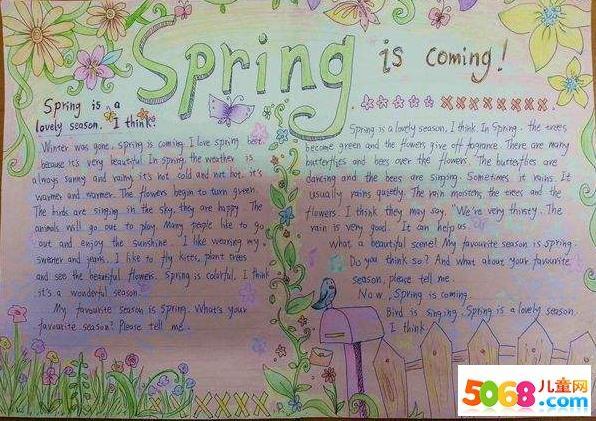 Spring is coming!
Spring is a
lovely season. I think.
Winter was gone, spring is coming. I love spring best.
because it's very beautiful. In spring, the weather is
always sunny and rainy, it's not cold and not hot. it's
warmer and warmer. The flowers begin to turn green.
The birds are singing in the sky, they are happy. The
animals will go out to play. Many people like to go
out and enjoy the sunshine. I like wearing my
sweater and jeans. I like to fly kites, plant trees
and see the beautiful flowers. Spring is colorful. I think
it's a wonderful season.
My favourite season is spring. What's your
favourite season? Please tell me.
Spring is a lovely season, I think. In Spring. the trees
become green and the flowers give off fragrance. There are many
butterflies and bees over the flowers. The butterflies are
dancing and the bees are singing. Sometimes it rains. It
usually rains quietly. The rain moistens the trees and the
flowers. I think they may say, "We're very thirsty. The
rain is very good. It can help us.
What a beautiful scene! My favourite season is spring.
Do you think so? And what about your favourite
season, please tell me.
Now, Spring is coming.
Bird is singing, Spring is a lovely season.
I think.
5068儿童网
.com